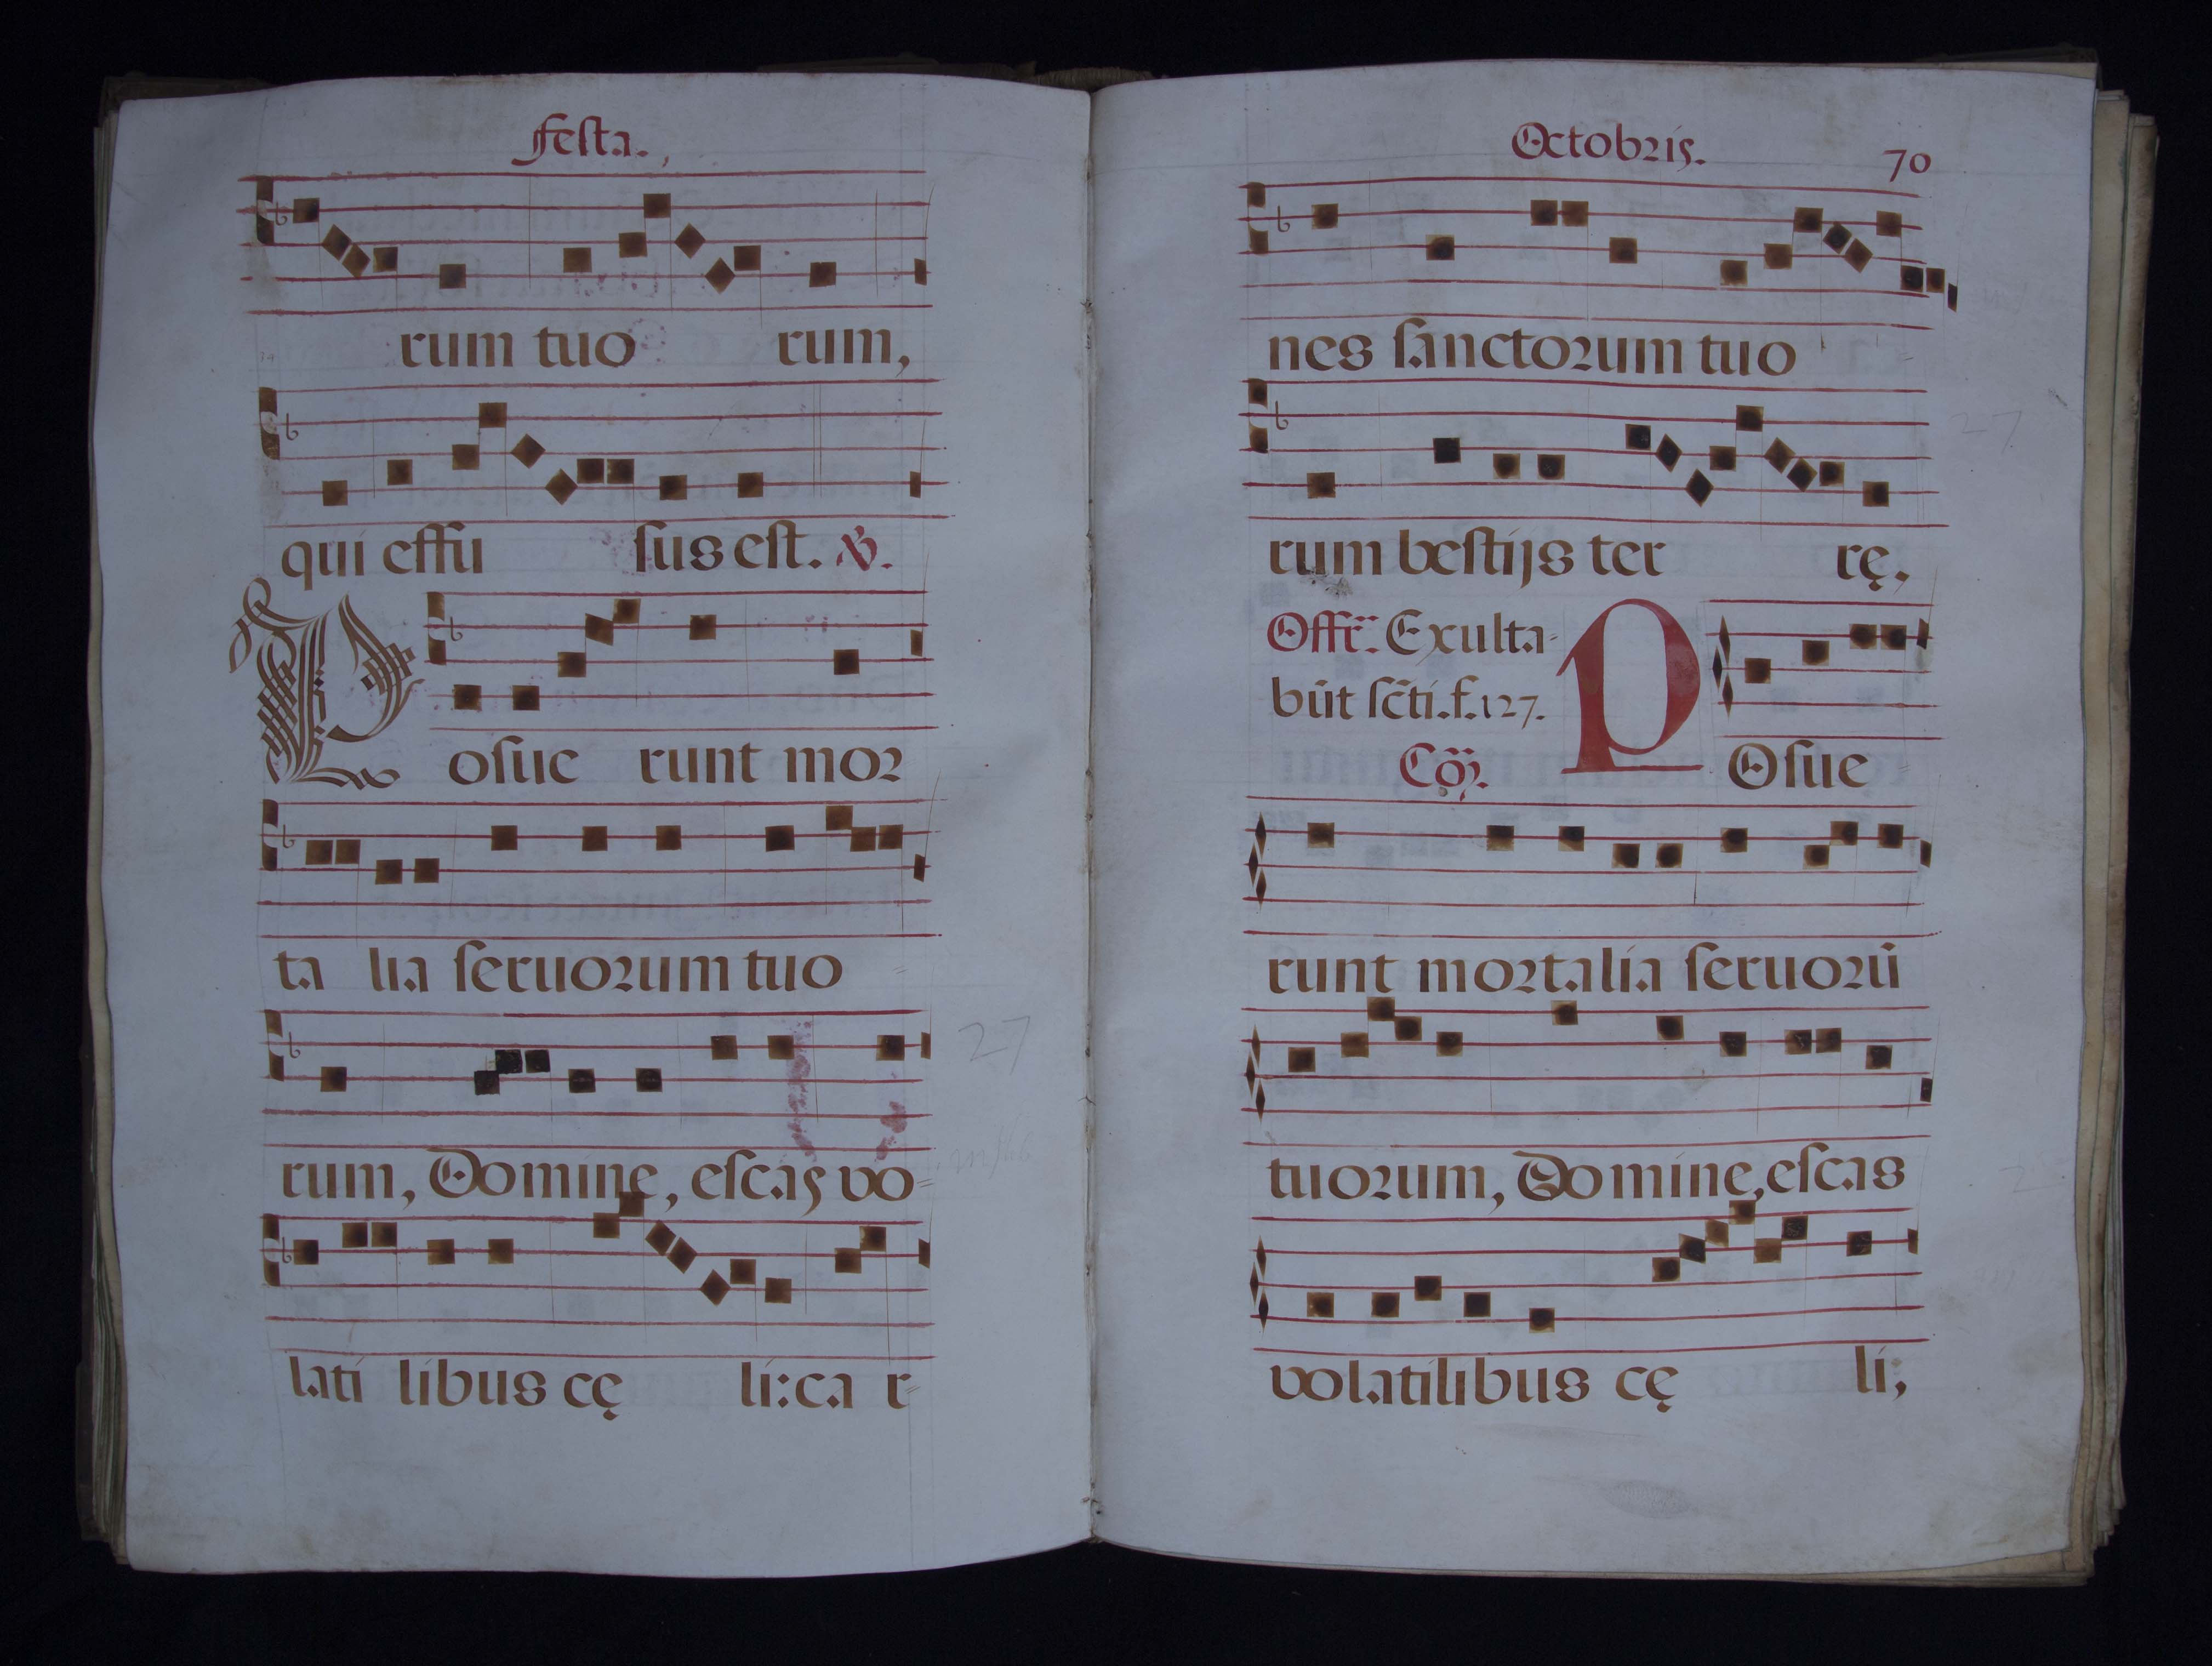 Festa.,
rum tuo rum,
qui effu sus est. ℣.
Posue runt mor
ta lia seruorum tuo
rum, Domine, escas vo=
lati libus cę li: ca r=
27
Octobris. 70
nes sanctorum tuo
rum bestijs ter rę.
Offr̃: Exulta=
bũt sc̃ti. f. 127.
Cõ. POsue
runt mortalia seruorũ
tuorum, Domine, escas
volatilibus cę li,
27